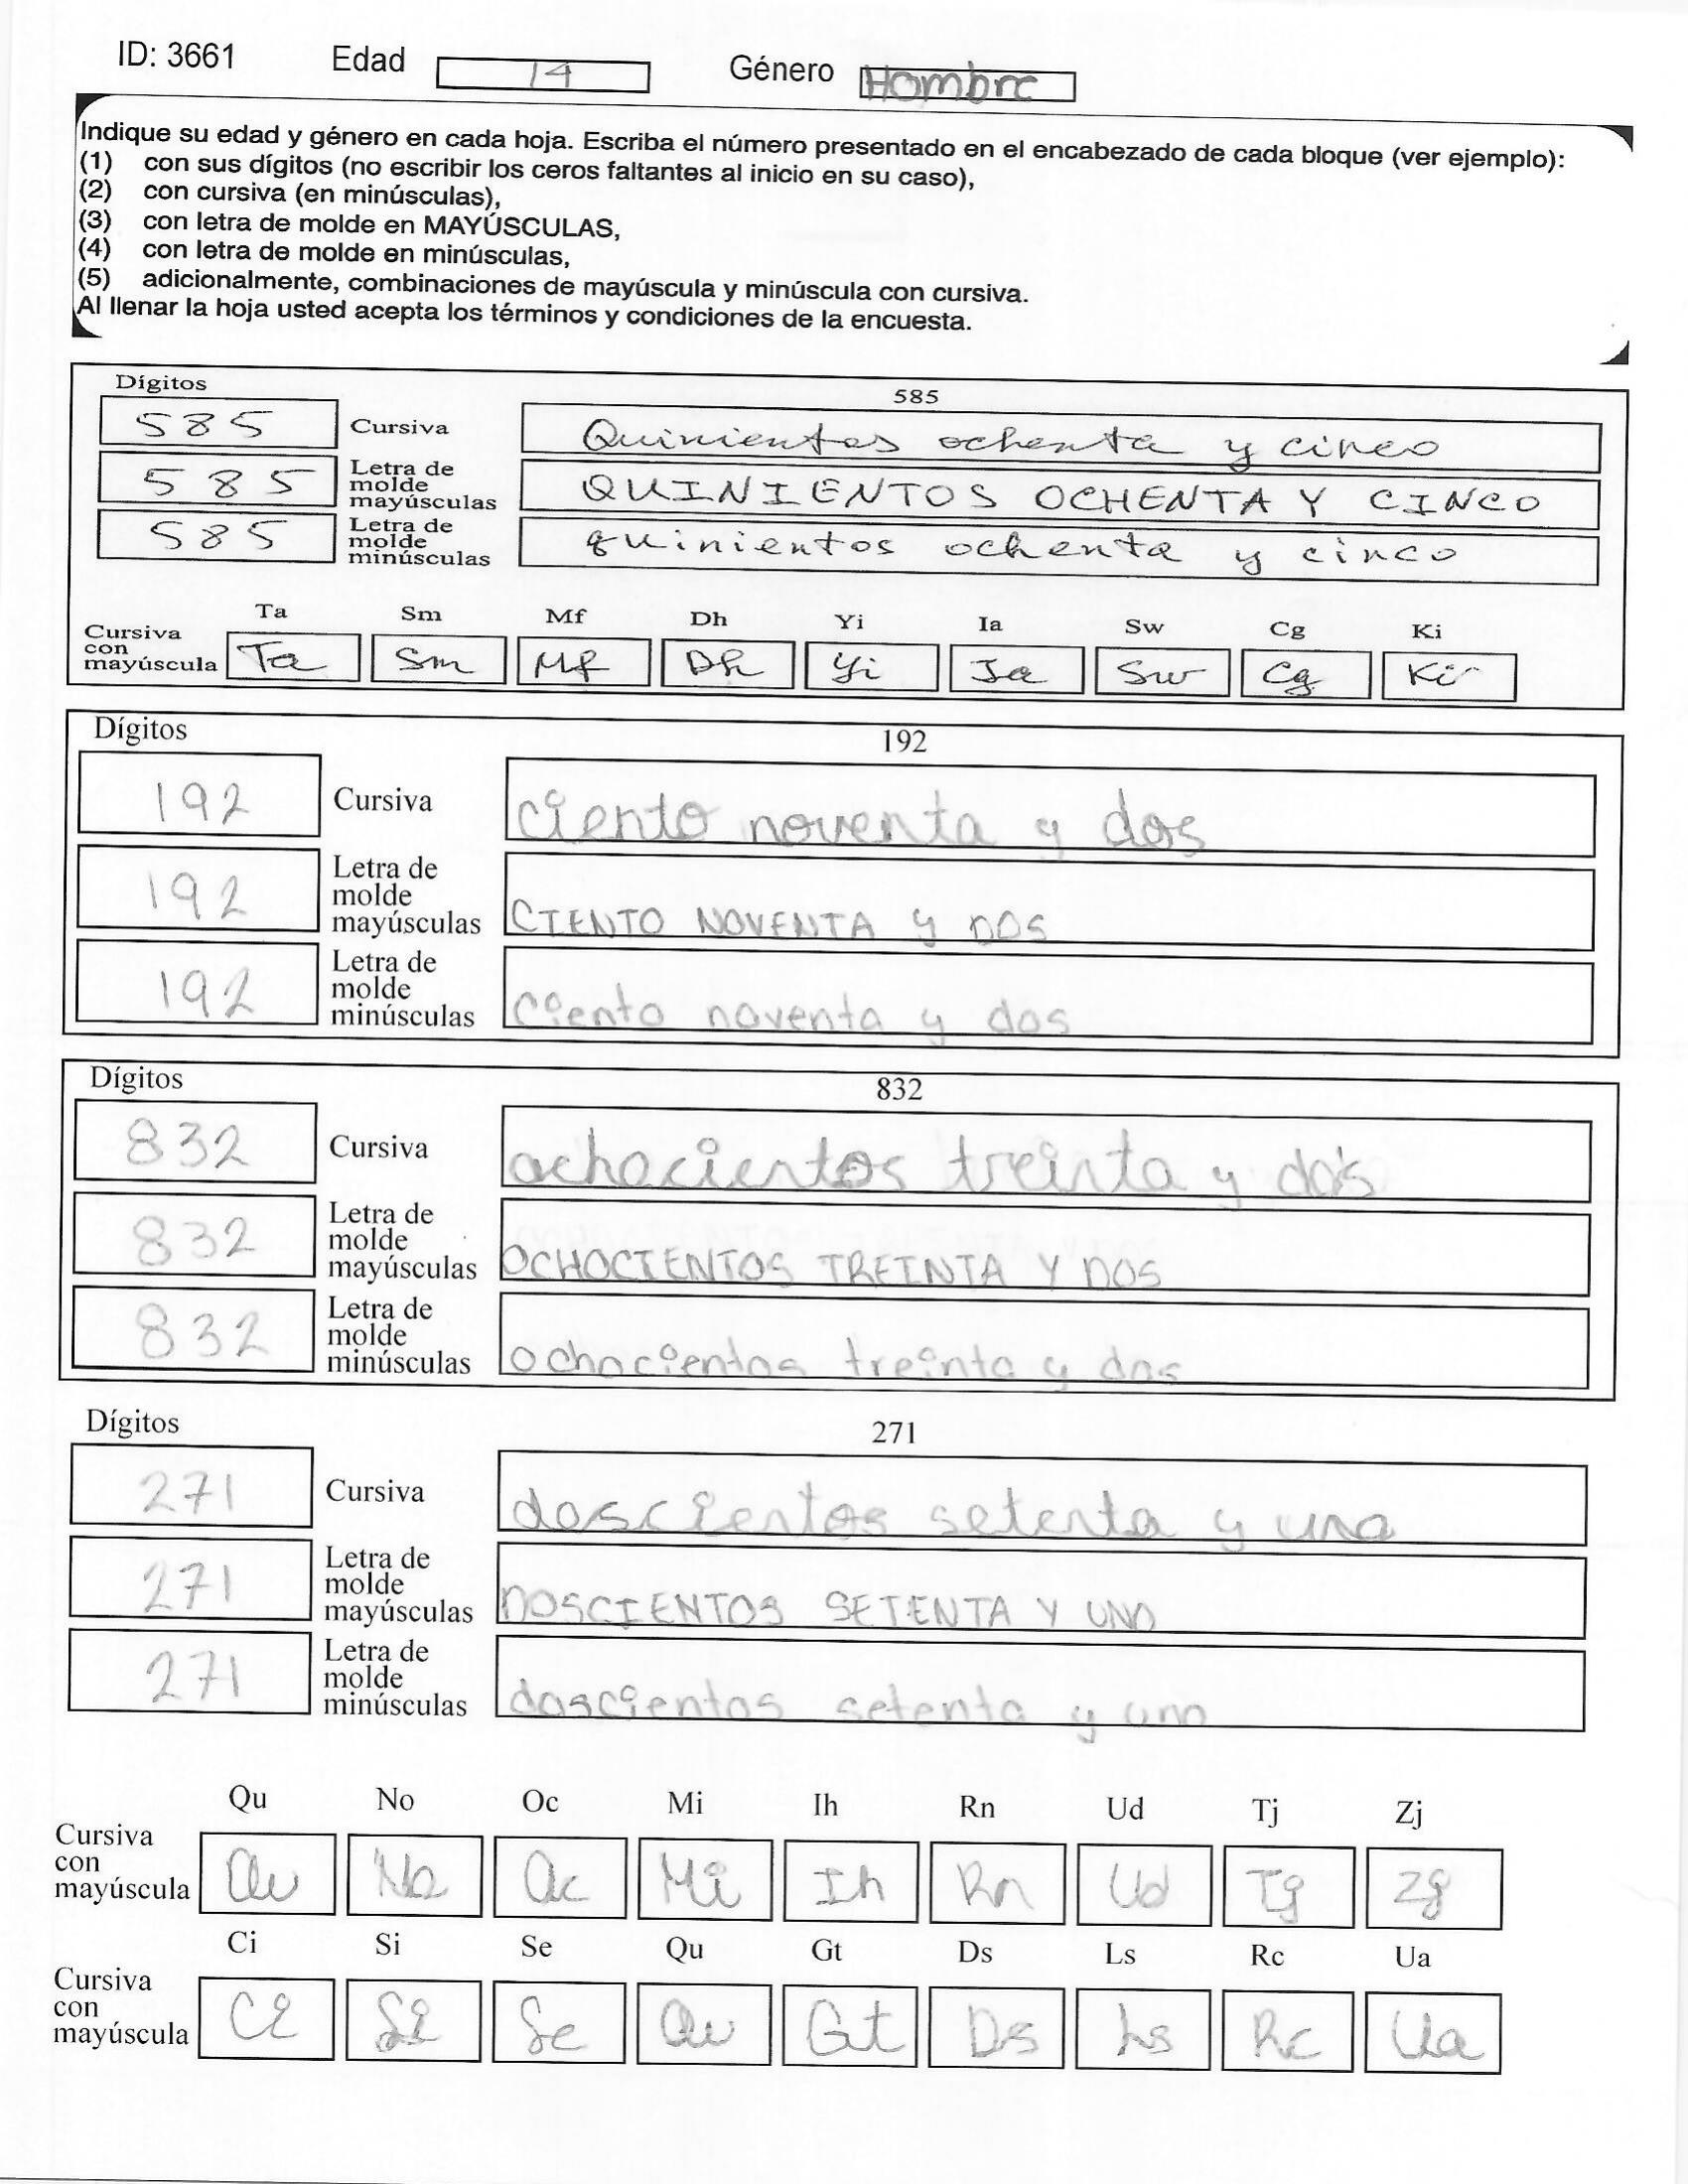 ID: 3661 Edad 14 Género Hombre
Indique su edad y género en cada hoja. Escriba el número presentado en el encabezado de cada bloque (ver ejemplo):
(1) con sus dígitos (no escribir los ceros faltantes al inicio en su caso),
(2) con cursiva (en minúsculas),
(3) con letra de molde en MAYÚSCULAS,
(4) con letra de molde en minúsculas,
(5) adicionalmente, combinaciones de mayúscula y minúscula con cursiva.
Al llenar la hoja usted acepta los términos y condiciones de la encuesta.
Dígitos 585
585 Cursiva Quinientos ochenta y cinco
585 Letra de molde mayúsculas QUINIENTOS OCHENTA Y CINCO
585 Letra de molde minúsculas quinientos ochenta y cinco
Ta Sm Mf Dh Yi Ia Sw Cg Ki
Cursiva con mayúscula Ta Sm Mf Dh Yi Ia Sw Cg Ki
Dígitos 192
192 Cursiva ciento noventa y dos
192 Letra de molde mayúsculas CIENTO NOVENTA y DOS
192 Letra de molde minúsculas ciento noventa y dos
Dígitos 832
832 Cursiva ochocientos treinta y dos
832 Letra de molde mayúsculas OCHOCIENTOS TREINTA Y DOS
832 Letra de molde minúsculas ochocientos treinta y dos
Dígitos 271
271 Cursiva doscientos setenta y uno
271 Letra de molde mayúsculas DOSCIENTOS SETENTA Y UNO
271 Letra de molde minúsculas doscientos setenta y uno
Qu No Oc Mi Ih Rn Ud Tj Zj
Cursiva con mayúscula Qu No Oc Mi Ih Rn Ud Tj Zj
Ci Si Se Qu Gt Ds Ls Rc Ua
Cursiva con mayúscula Ci Si Se Qu Gt Ds Ls Rc Ua